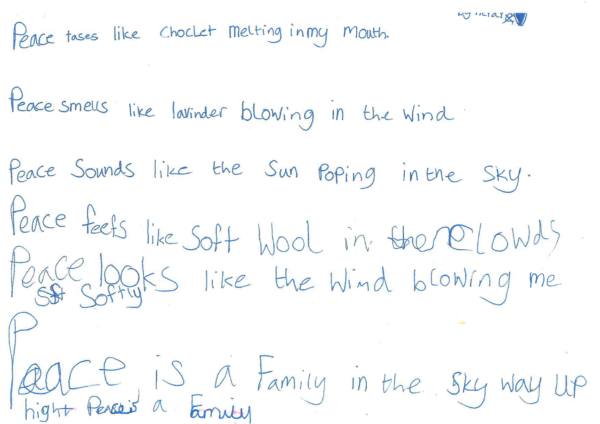 Peace tases like Choclet melting in my mouth.
Peace smells like lavinder blowing in the wind
Peace Sounds like the Sun Poping in the Sky.
Peace feels like Soft Wool in the Clowds
Peace looks like the Wind blowing me
Softly
Peace is a Family in the Sky way UP
hight Peace is a Family